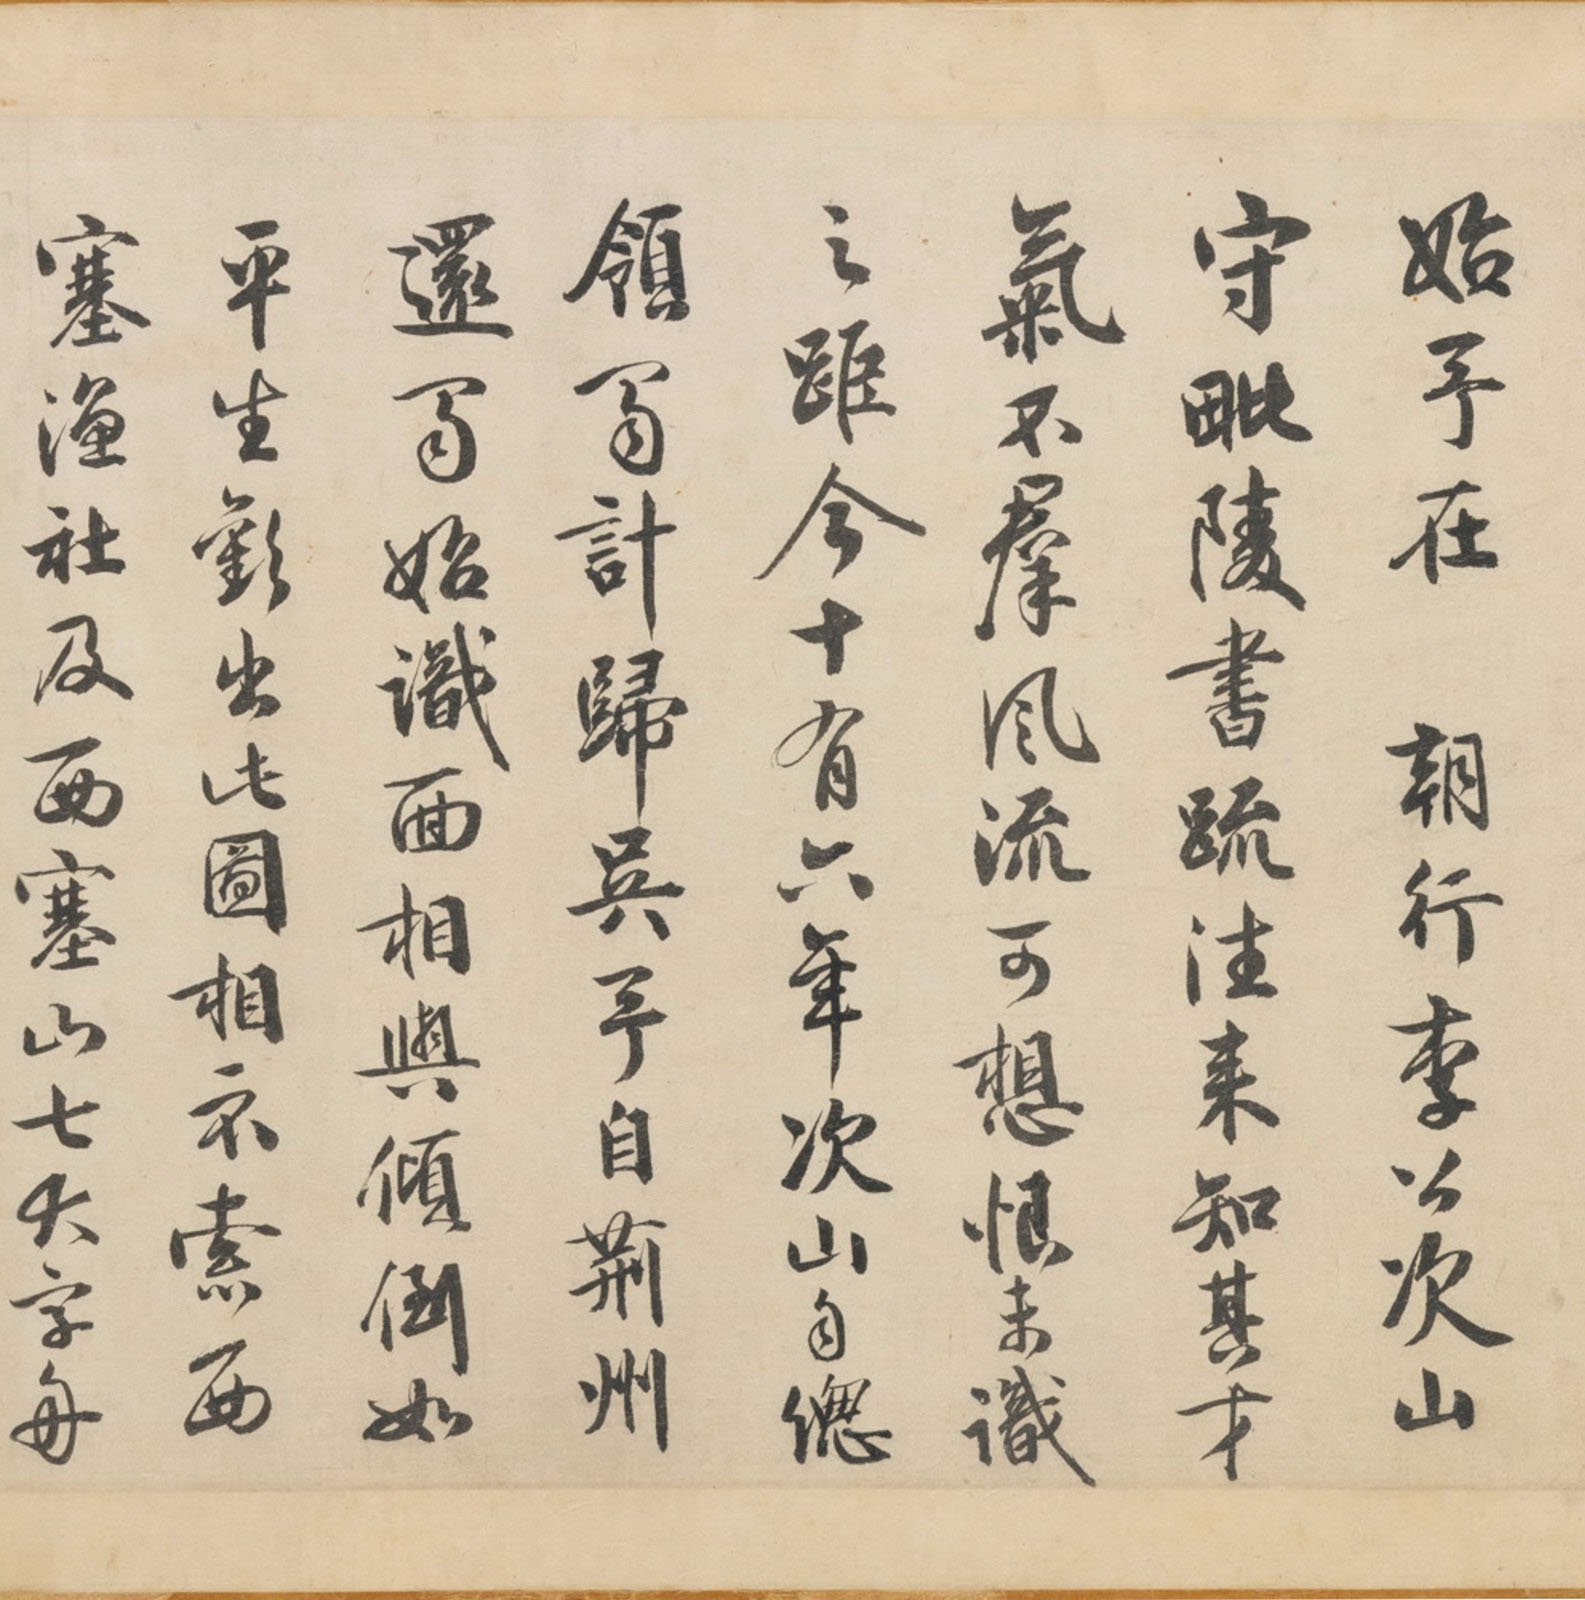 始予在 朝行李公次山
守毗陵書疏往来知其才
氣不羣風流可想恨未識
之距今十有六年次山自總
領蜀計歸吳予自荊州
還蜀始識面相與傾倒如
平生歡出此圖相示索西
塞漁社及西塞山七大字舟